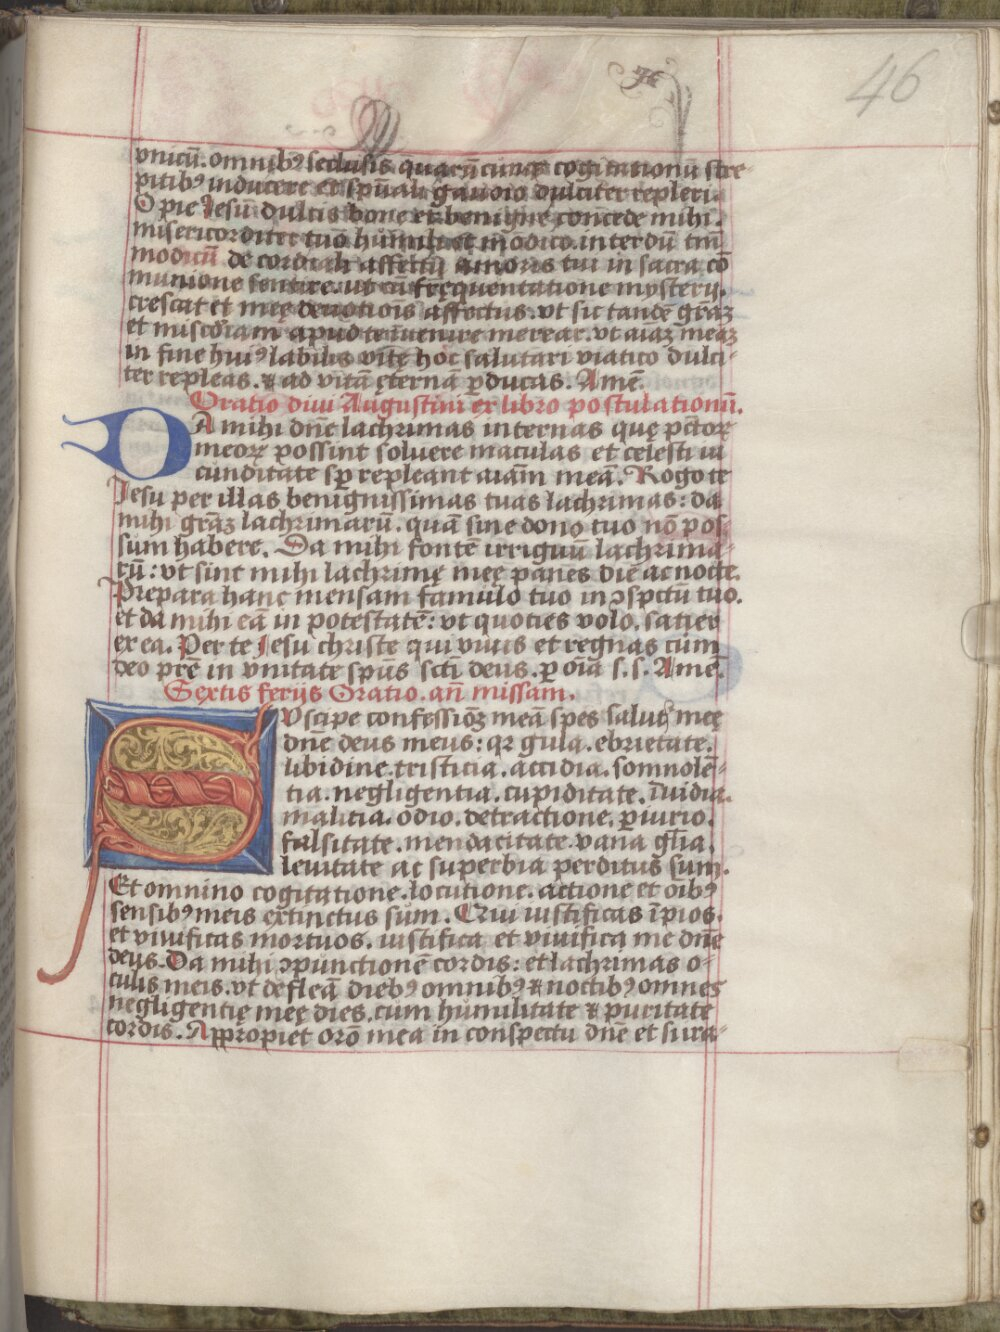 46
vnicũ. omnibꝯ seclusis quarũcunqꝫ cogitationũ stre-
pitibꝯ inducere et spũali gaudio dulciter repleri.
O pie Iesu dulcis bone et benigne concede mihi.
misericorditer tuo humili et modico. interdũ tm̃
modicũ de cordiali affectu amoris tui in sacra cõ
munione sentire. ut cũ frequentatione mysterij.
crescat et meę deuotiõis affectus. vt sic tandẽ grãꝫ
et miscďiam apud te inuenire merear. vt aiaꝫ meaꝫ
in fine huiꝯ labilis vitę hoc salutari viatico dulci-
ter repleas. & ad vitã ęternã ꝑducas. Amẽ.
Oratio diui Augustini ex libro postulationũ.
DA mihi dñe lachrimas internas quę pctõꝝ
meoꝝ possint soluere maculas et celesti iu
cunditate sꝑ repleant aiam meã. Rogo te
Iesu per illas benignissimas tuas lachrimas: da
mihi grãꝫ lachrimarũ. quã sine dono tuo nõ pos-
sum habere. Da mihi fontẽ irriguũ lachrima-
rũ: vt sint mihi lachrimę meę panes die ac nocte.
Prepara hanc mensam famulo tuo in ↄspctũ tuo.
et da mihi eã in potestatẽ: vt quoties volo. satier
ex ea. Per te Iesu christe qui viuis et regnas cum
deo prẽ in vnitate spũs scti deus. ꝑ oĩa s.s. Amẽ.
Sextis ferijs Oratio. añ missam.
SVscipe confessiõꝫ meã spes salutꝭ meę
dñe deus meus: qꝛ gula. ebrietate.
libidine. tristicia. accidia. somnolẽ-
tia. negligentia. cupiditate. ĩuidia.
malitia. odio. detractione. ꝑiurio.
falsitate. mendacitate. vana glĩa.
leuitate ac superbia perditus sum.
Et omnino cogitatione. locutione. actione et oĩbꝯ
sensibꝯ meis extinctus sum. Qui iustificas ĩpios.
et viuificas mortuos. iustifica et viuifica me dñe
deus. Da mihi ↄpunctionẽ cordis: et lachrimas o-
culis meis. vt defleã diebꝯ omnibꝯ & noctibꝯ omnes
negligentię meę dies. cum humilitate & puritate
cordis. Appropiet orõ mea in conspectu dñe et si ira-